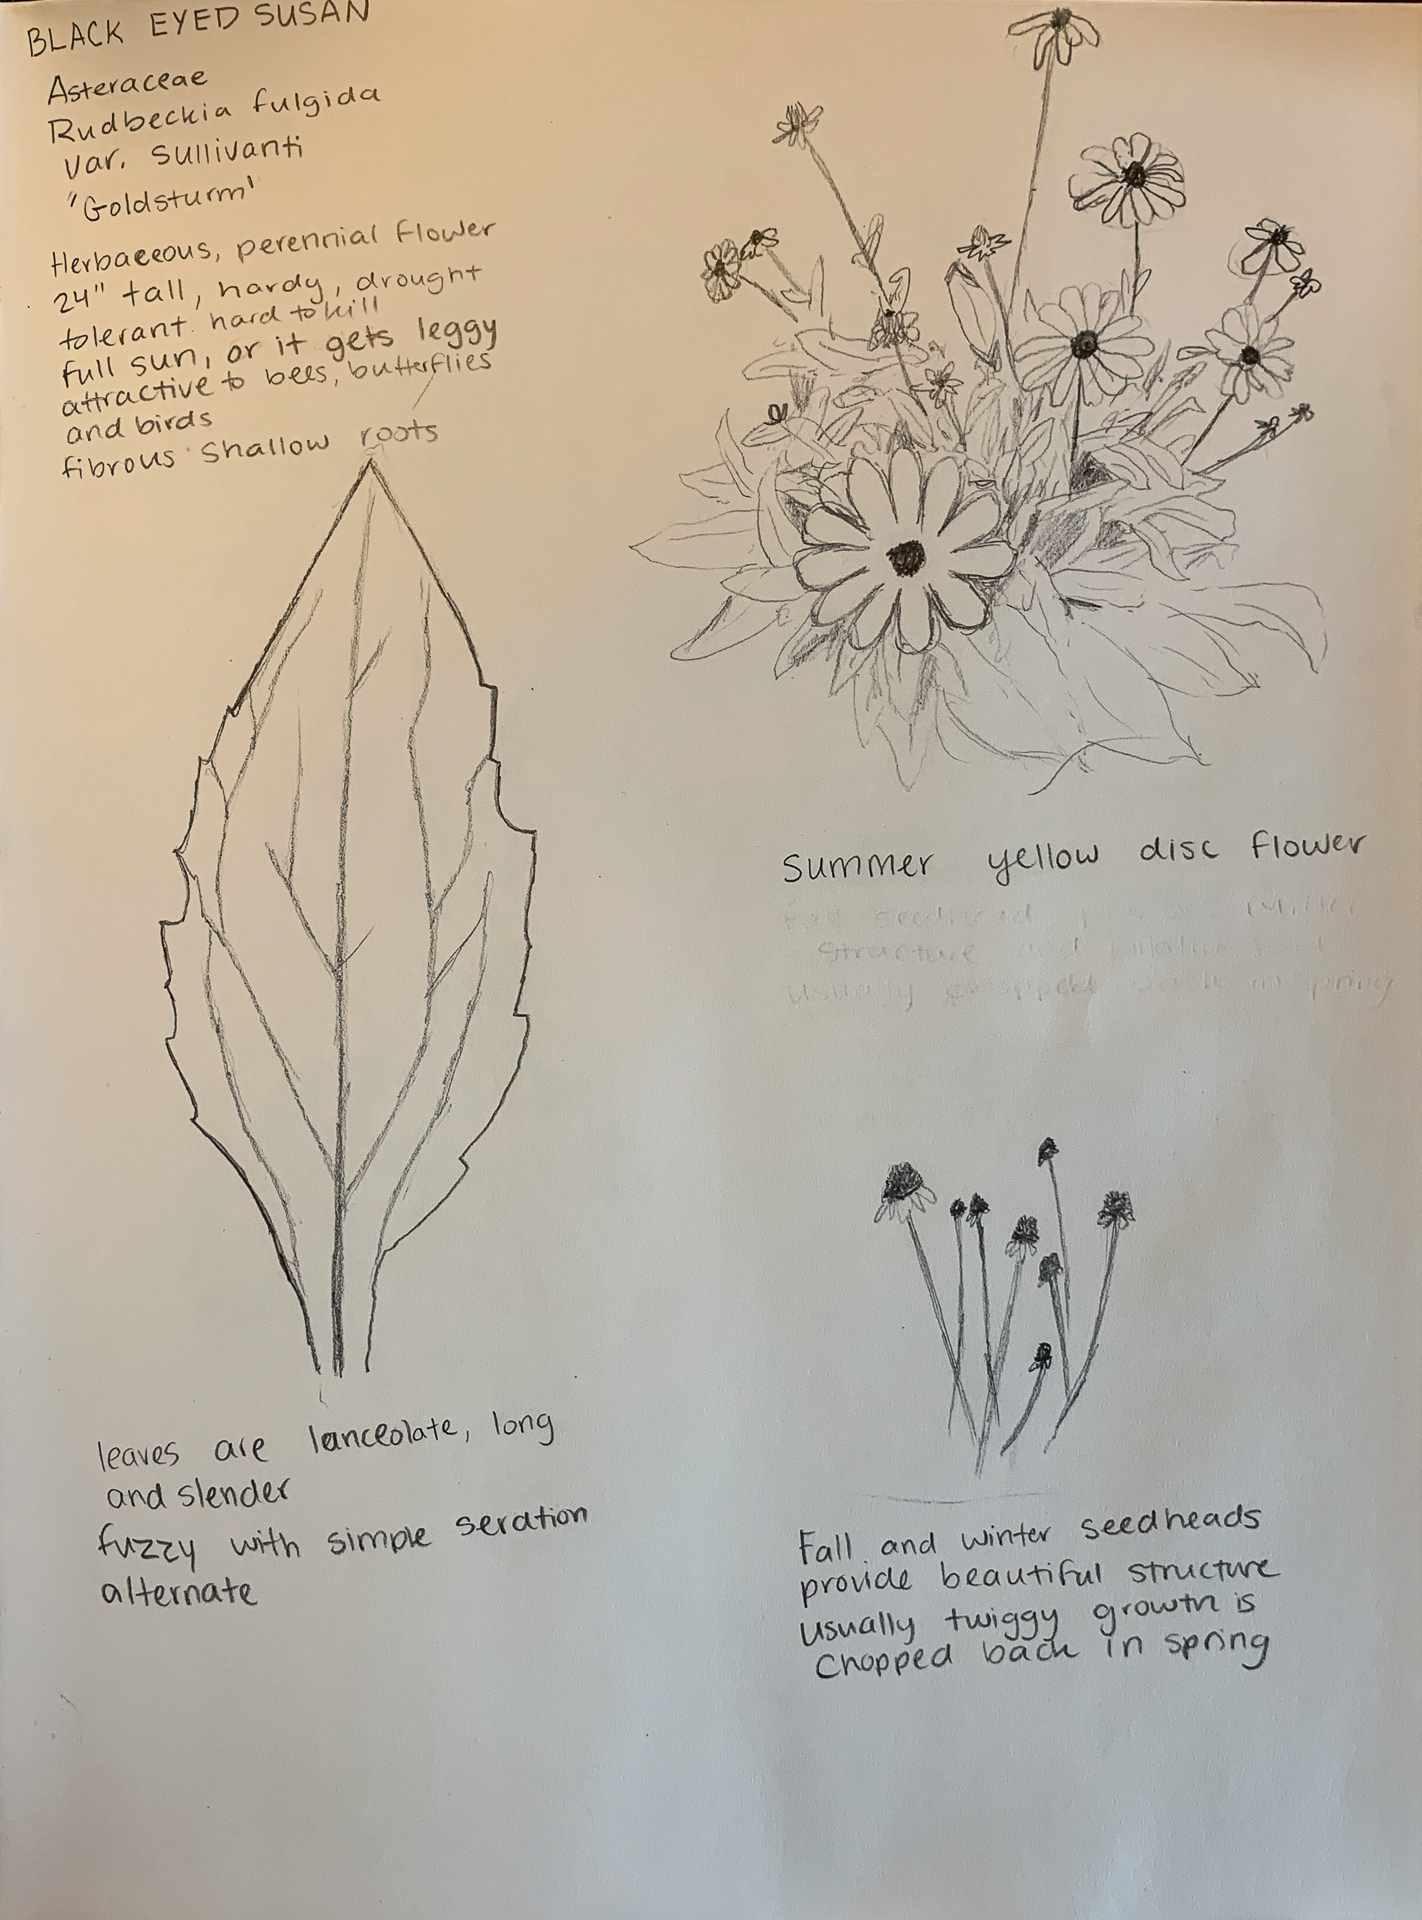 BLACK EYED SUSAN
Asteraceae
Rudbeckia fulgida
var. Sullivanti
"Goldsturm'
Herbaceous, perennial flower
24" tall, hardy, drought
tolerant. hard to kill
full sun, or it gets leggy
attractive to bees, butterflies
and birds
fibrous shallow roots
Summer yellow disc flower
seedhead
structure
usually in spring
leaves are lanceolate, long
and slender
fuzzy with simple seration
alternate
Fall and winter seedheads
provide beautiful structure
usually twiggy growth is
chopped back in spring